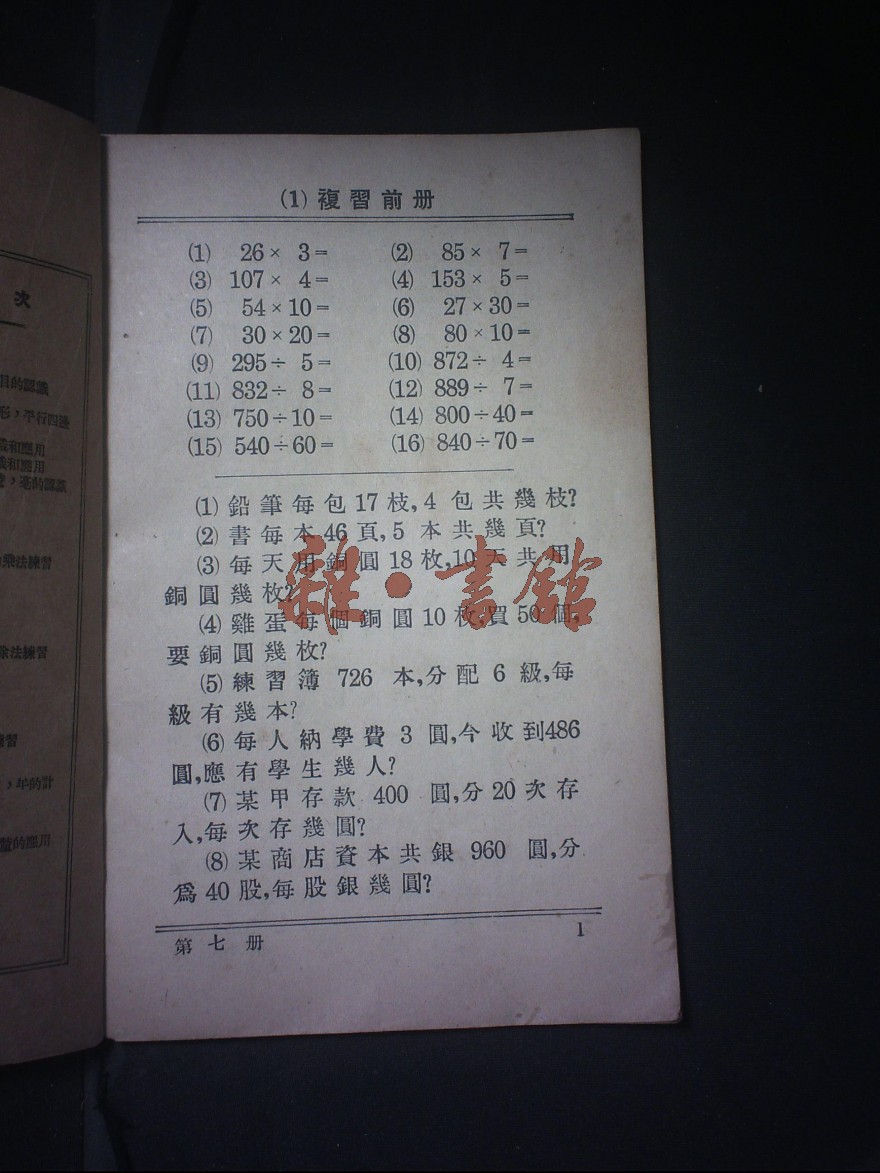 (1) 複習前册
(1) 26 × 3 = (2) 85 × 7 =
(3) 107 × 4 = (4) 153 × 5 =
(5) 54 × 10 = (6) 27 × 30 =
(7) 30 × 20 = (8) 80 × 10 =
(9) 295 ÷ 5 = (10) 872 ÷ 4 =
(11) 832 ÷ 8 = (12) 889 ÷ 7 =
(13) 750 ÷ 10 = (14) 800 ÷ 40 =
(15) 540 ÷ 60 = (16) 840 ÷ 70 =
(1) 鉛筆每包17枝,4 包共幾枝?
(2) 書每本46頁,5 本共幾頁?
(3) 每天用銅圓18枚,10天共用
銅圓幾枚?
(4) 雞蛋每個銅圓10枚,買50個,
要銅圓幾枚?
(5) 練習簿 726 本,分配 6 級,每
級有幾本?
(6) 每人納學費 3 圓,今收到486
圓,應有學生幾人?
(7) 某甲存款 400 圓,分20次存
入,每次存幾圓?
(8) 某商店資本共銀 960 圓,分
爲40股,每股銀幾圓?
第七册 1
雜·書館
次
目的認識
形,平行四邊
和應用
和應用
,毫的認識
乘法練習
除法練習
習
,年的計
的應用